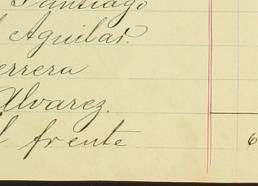 Santiago
Aguilar.
errera
Alvarez.
l frente 6